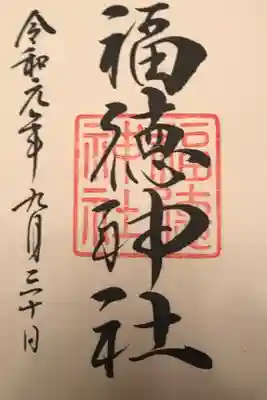 福徳神社
福徳
神社
令和元年九月三十日